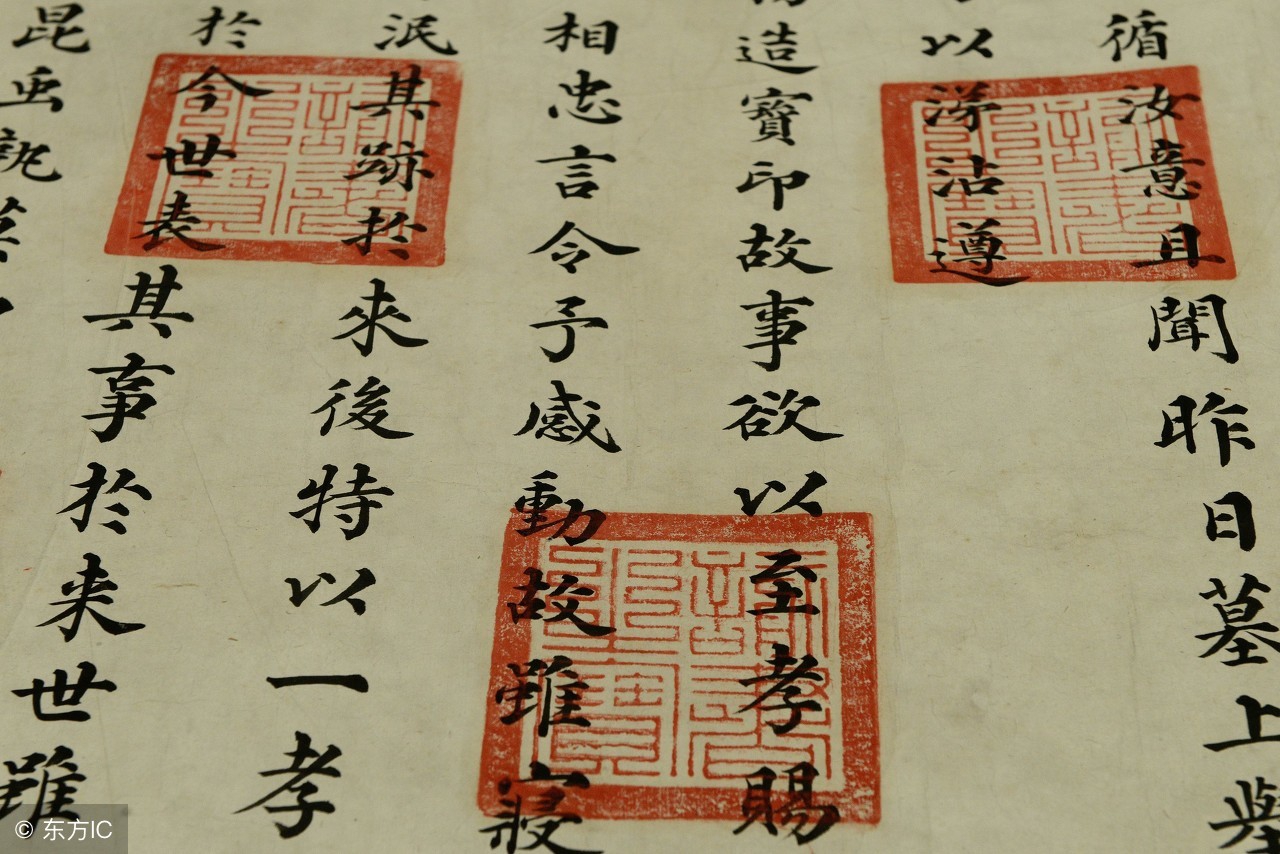 循汝意且聞昨日墓上
以涕沾遵
造寶印故事欲以至孝賜
相忠言令予感動故雖寢
泯其跡於來後特以一孝
於今世表其事於来世雖
昆
© 东方IC